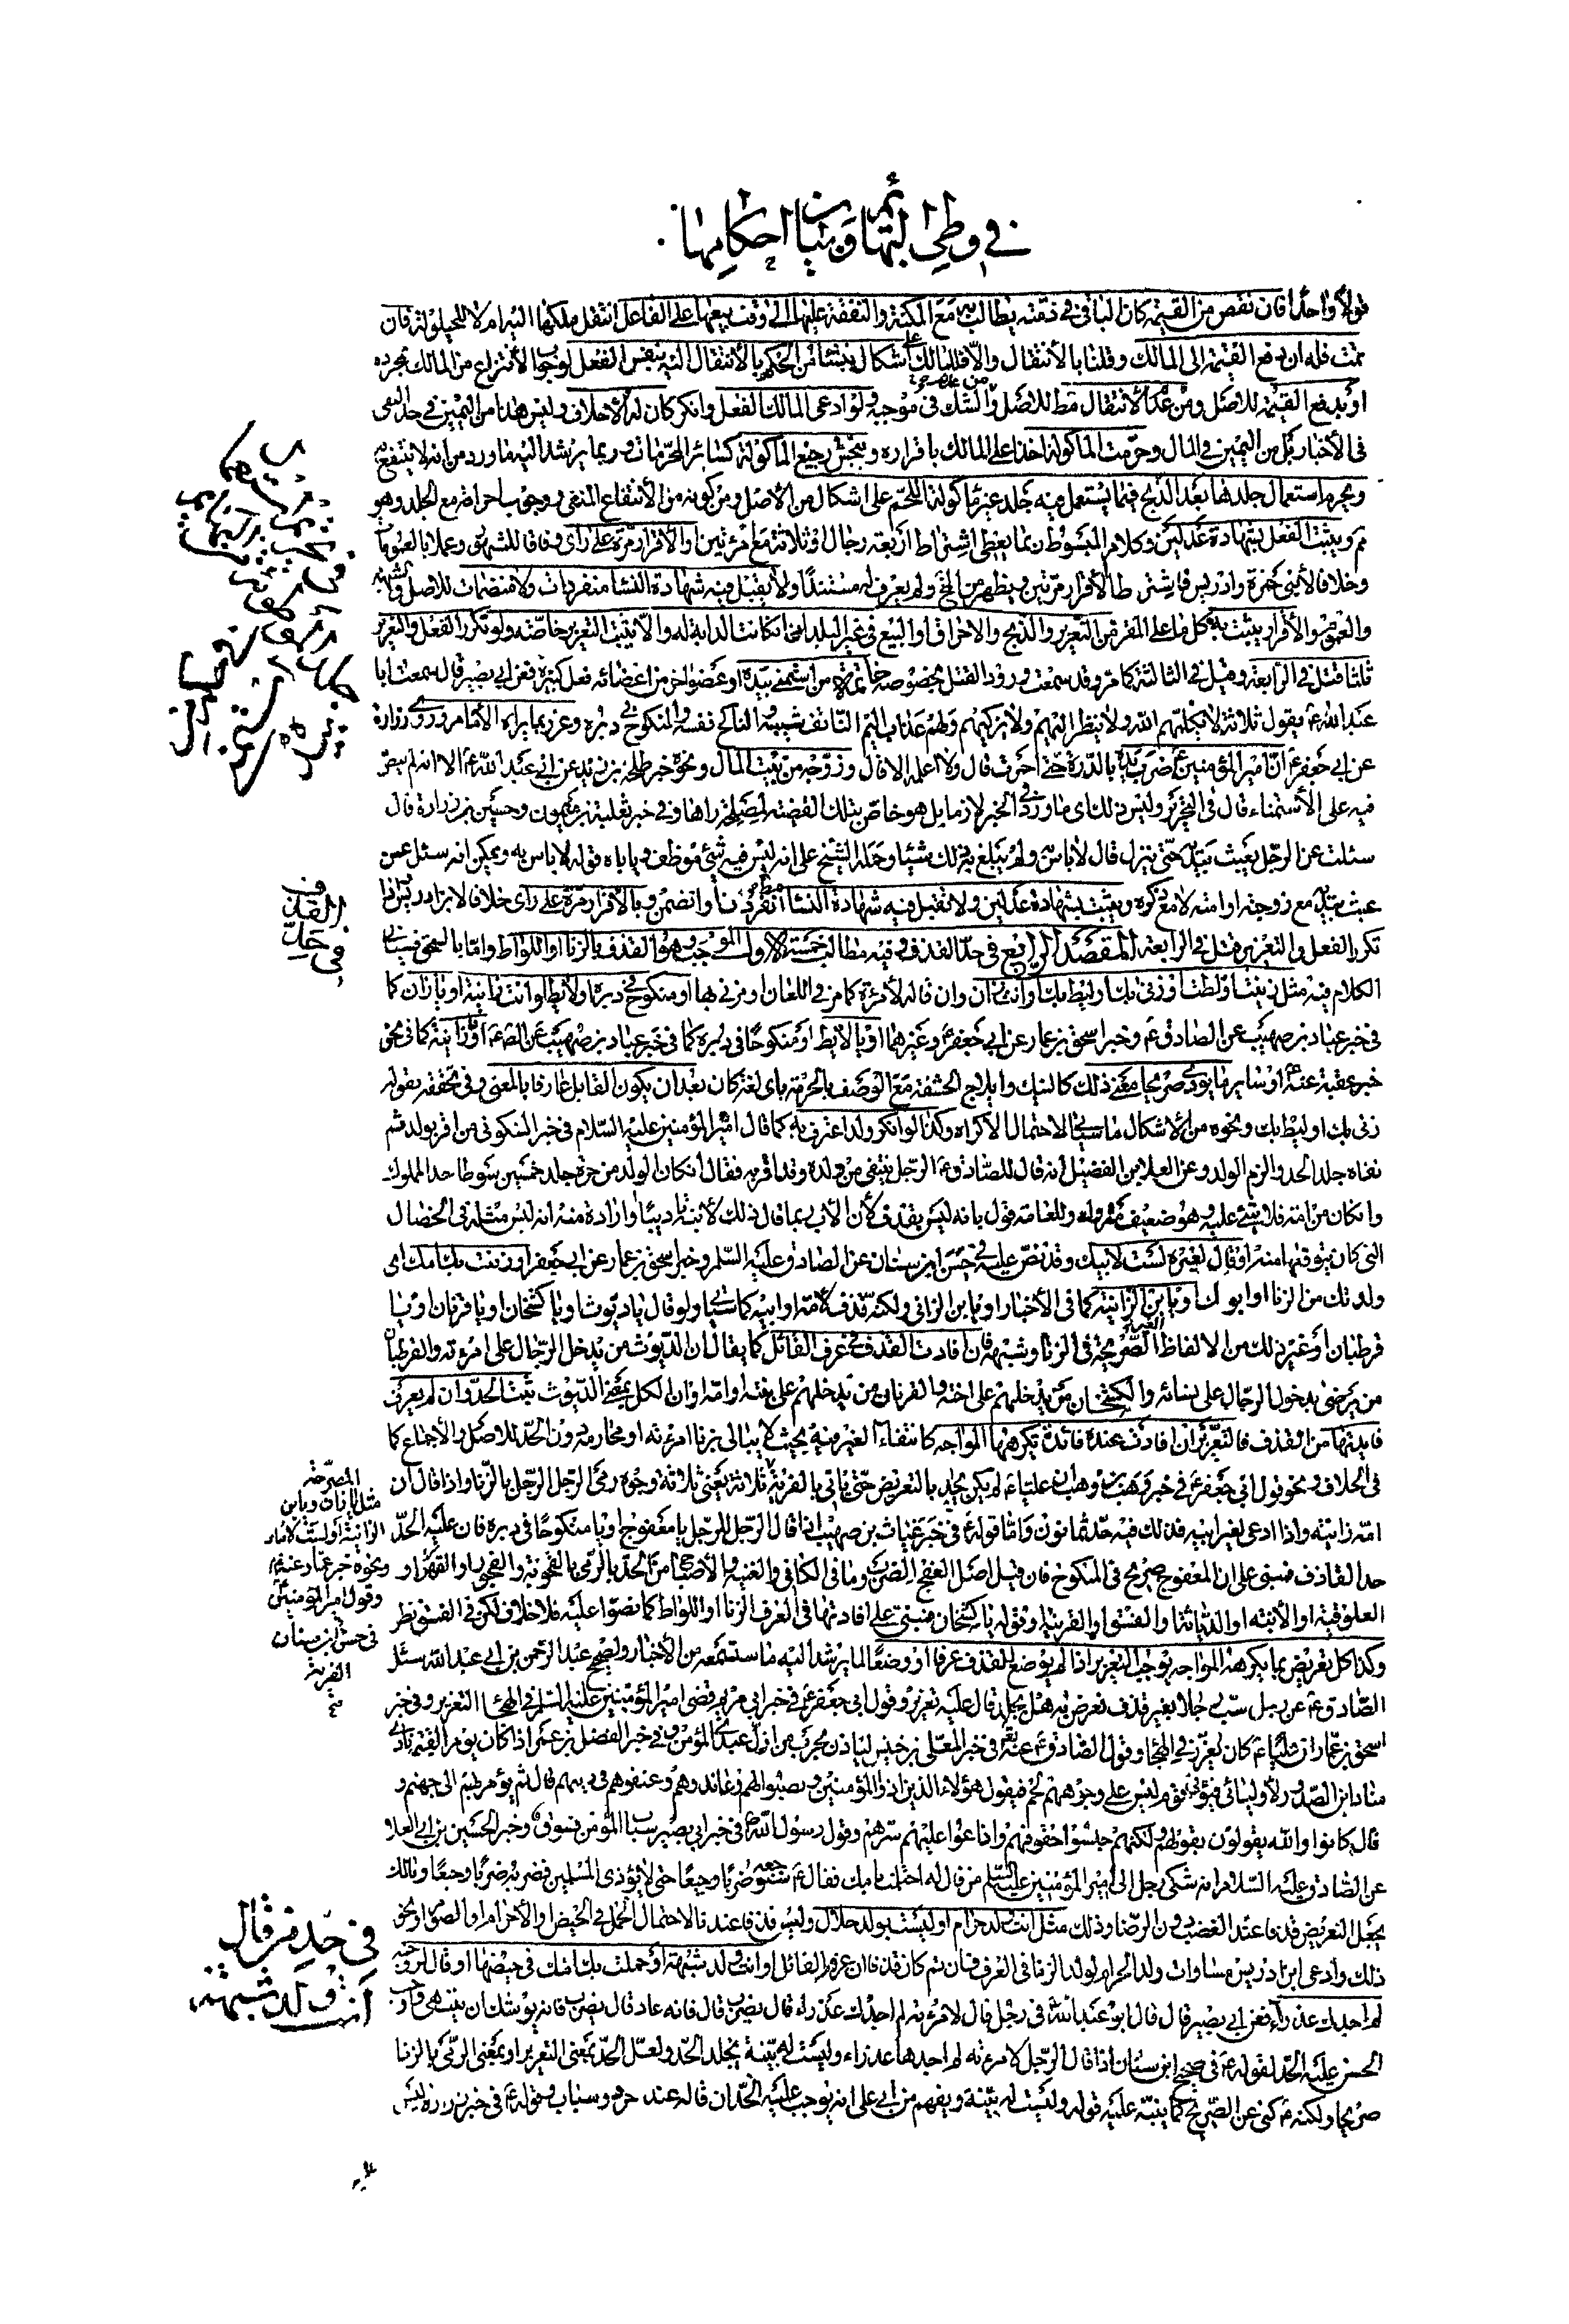 في وطئ البهائم وبيان احكامها
قولا واحدا فان نقص من القيمة كان الباقي في ذمته يطالب به مع المكنة والنفقة عليها الى وقت بيعها على الفاعل ان انتقل ملكها اليه ام لا للحيلولة فان
نمت فله ان دفع القيمة الى المالك وقلنا بالانتقال والا فللمالك على اشكال ينشأ من الحكم بالانتقال اليه بنفس الفعل لوجوب الانتزاع من المالك بمجرده
او بدفع القيمة للاصل ومن عدم الانتقال مط للاصل والشك في موجبه ولو ادعى المالك الفعل وانكر كان له الاحلاف وليس هذا من اليمين في حد المنفي
في الاخبار بل من اليمين في المال وحرمت الماكولة اخذا على المالك باقراره وينجس رجيع الماكولة كسائر المحرمات وربما يرشد اليه ما ورد من انه لا ينتفع به
ويحرم استعمال جلدها بعد الذبح فيما يستعمل فيه جلد غير ماكولة اللحم على اشكال من الاصل ومن كونه من الانتفاع المنفي ووجوب احراقه مع الجلد وهو
ثم ويثبت الفعل بشهادة عدلين وكلام المبسوط ربما يعطي اشتراط اربعة رجال او ثلاثة مع امرأتين او الاقرار مرة على راى وفاقا للمشهور وعملا بالعموم
وخلافا لابني حمزة وادريس فاشترطا الاقرار مرتين ويظهر من المخ ولم يعرف له مستندا ولا يقبل فيه شهادة النسا منفردات ولا منضمات للاصل والشهرة
والعموم والاقرار يثبت به كل ما على المقر من التعزير والذبح والاحراق او البيع في غير البلد اخ ان كانت الدابة له والا يثبت التعزير خاصة ولو تكرر الفعل والتعزير
ثلثا قتل في الرابعة وقيل في الثالثة كما مر وقد سمعت ورود القتل بخصوصه خاتمة من استمنى بيده او عضو اخر من اعضائه فعل كبيرة فعن ابي بصير قال سمعت ابا
عبد الله ع يقول ثلاثة لا يكلمهم الله ولا ينظر اليهم ولا يزكيهم ولهم عذاب اليم الناتف شيبه والناكح نفسه والمنكوح في دبره وعزر بما يراه الامام وروى زرارة
عن ابي جعفر ع ان امير المؤمنين ع ضرب يده بالدرة حتى احمرت قال ولا اعلمه الا قال وزوجه من بيت المال ونحوه خبر طلحة بن زيد عن ابي عبد الله ع الا انه لم ينص
فيه على الاستمناء قال في التحرير وليس ذلك اى ما ورد في الخبر لازما بل هو خاص بتلك القضية لمصلحة راها وفي خبر ثعلبة بن ميمون وحسين بن زرارة قال
سئلت عن الرجل يعبث بيديه حتى ينزل قال لا باس به ولم يبلغ به ذلك شيئا وحمله الشيخ على انه ليس فيه شئ موظف وياباه قوله لا باس به ويمكن انه سئل عمن
عبث بيديه مع زوجته او امته لا مع ذكره ويثبت بشهادة عدلين ولا تقبل فيه شهادة النسا انفردن او انضممن وبالاقرار مرة على راى خلافا لابن ادريس فاذا
تكرر الفعل والتعزير قتل في الرابعة المقصد الرابع في حد القذف وفيه مطالب خمسة الاول الموجب وهو القذف بالزنا او اللواط واما بالسحق فسياتي
الكلام فيه مثل زنيت او لطت او زنى بك او ليط بك او انت زان وان قاله لامرأة كما مر في اللعان او مزني بها او منكوح في دبره ولائط او انت زانية او يا زان كما
في خبر عباد بن صهيب عن الصادق ع وخبر اسحق بن عمار عن ابي جعفر ع وغيرهما او يا لايط او منكوحا في دبره كما في خبر عباد بن صهيب عن الصادق ع او يا زانية كما في نحو
خبر عقبة عنه ع او سائر ما يؤدي صريحا معنى ذلك كالنيك وايلاج الحشفة مع الوصف بالحرمة باى لغة كان بعد ان يكون القائل عارفا بالمعنى وفي تحققه بقوله
زنى بك او ليط بك ونحوه من الاشكال ما سياتي لاحتمال الاكراه وكذا لو انكر ولدا اعترف به كما قال امير المؤمنين عليه السلام في خبر السكوني من اقر بولد ثم
نفاه جلد الحد والزم الولد وعن العلا بن الفضيل انه قال للصادق ع الرجل ينتفي من ولده وقد اقر به فقال ان كان الولد من حرة جلد خمسين سوطا حد المملوك
وان كان من امة فلا شئ عليه وهو ضعيف متروك وللعامة قول بانه ليس بقذف لان الاب ربما قال ذلك لابنه تاديبا وارادة منه انه ليس مثله في الخصال
التي كان يتوقعها منه او قال لغيره لست لابيك وقد نص عليه في حسن ابن سنان عن الصادق عليه السلم وخبر اسحق بن عمار عن ابي جعفر او زنت بك امك اى
ولدتك من الزنا او ابوك او يا بن الزانية كما في الاخبار او يا بن الزاني ولكنه قذف لامه او ابيه كما سياتي او لو قال يا ديوث او يا كشخان او يا قرنان او يا
قرطبان او غير ذلك من الالفاظ الغير الصريحة في الزنا وشبهه فان افادت القذف في عرف القائل كما يقال ان الديوث من يدخل الرجال على امرءته والقرطبان
من يرضى بدخول الرجال على نسائه والكشخان من يدخلهم على اخته والقرنان من يدخلهم على بنته او امه او ان الكل بمعنى الديوث ثبت الحد وان لم يعرف
فايدتها من القذف فالتعزير ان افادت عنده فائدة يكرهها المواجه كانتفاء الغيرة منه بحيث لا يبالي بزنا امرءته او محارمه دون الحد للاصل والاجماع كما
في الخلاف ونحو قول ابي جعفر ع في خبر وهب بن وهب ان عليا ع لم يكن يجلد بالتعريض حتى ياتي بالفرية ثلاثة يعني ثلاثة وجوه رمى الرجل الرجل بالزنا واذا قال ان
امه زانية واذا ادعى لغير ابيه فذلك فيه حد ثمانون واما قوله ع في خبر غياث بن صهيب اذا قال الرجل للرجل يا معفوج او يا منكوحا في دبره فان عليه الحد
حد القاذف فمبني على ان المعفوج صريح في المنكوح فان قيل اصل العفج الضرب وما في الكافي والغنية والاصباح من الحد بالرمي بالقحوبة والفجور والعهر او
العلوقية او الابنة او الدياثة والفسق او القرنية او بقوله يا كشخان مبني على افادتها في العرف الزنا او اللواط كما نصوا عليه فلا خلاف لكن في الفسق نظر
وكذا كل تعريض بما يكرهه المواجه يوجب التعزير اذا لم يوضع للقذف عرفا او وضعا لما يرشد اليه ما ستسمعه من الاخبار ولصحيح عبد الرحمن بن ابي عبد الله سئل
الصادق ع عن رجل سب رجلا بغير قذف تعرض به هل يجلد قال عليه تعزير وقول ابي جعفر ع في خبر ابي مريم قضى امير المؤمنين عليه السلم في الهجا التعزير وفي خبر
اسحق بن عمار ان عليا ع كان يعزر في الهجا وقول الصادق ع عنه تعالى في خبر المعلى بن خنيس لياذن بحرب من اذل عبدي المؤمن وفي خبر المفضل بن عمر اذا كان يوم القيمة نادى
مناد اين الصدود لاوليائي فيؤتى بقوم ليس على وجوههم لحم فيقول هؤلاء الذين اذوا المؤمنين ونصبوا لهم وعاندوهم وعنفوهم في دينهم قال ثم يؤمر بهم الى جهنم و
قال كانوا والله يقولون بقولهم ولكنهم حبسوا حقوقهم واذاعوا عليهم سرهم وقول رسول الله ص في خبر ابي بصير سباب المؤمن فسوق وخبر الحسين بن ابي العلا
عن الصادق عليه السلام انه شكى رجل الى امير المؤمنين عليه السلم من قال له احتلمت بامك فقال ع سنوجعه ضربا وجيعا حتى لا يؤذي المسلمين فضربه ضربا وجيعا ومالك
يجعل التعريض قذفا عند الغضب دون الرضا وذلك مثل انت ولد حرام او لست بولد حلال وليس قذفا عندنا لاحتمال الحمل في الحيض والاحرام او الصوم او نحو
ذلك وادعى ابن ادريس مساوات ولد الحرام لولد الزنا في العرف فان تم كان قذفا ان عرفه القائل او انت ولد شبهة او حملت بك امك في حيضها او قال لزوجته
لم اجدك عذراء فعن ابي بصير قال قال ابو عبد الله ع في رجل قال لامرءته لم اجدك عذراء قال يضرب قال فانه عاد قال يضرب فانه يوشك ان ينتهي واوجب
الحسن عليه الحد لقوله ع في صحيح ابن سنان اذا قال الرجل لامرءته لم اجدها عذراء وليست له بينة يجلد الحد ولعل الحد بمعنى التعزير او بمعنى الرمي بالزنا
صريحا ولكنه ع كنى عن الصريح كما ينبه عليه قوله وليست له بينة ويفهم من ابي علي انه يوجب عليه الحد ان قاله عند حرد وسباب وقوله ع في خبر زرارة ليس
عليه
في حد
القذف
المصرحة
وقول امير المؤمنين
في حسن ابن سنان
الفرية
في حد من قال
انت ولد شبهة